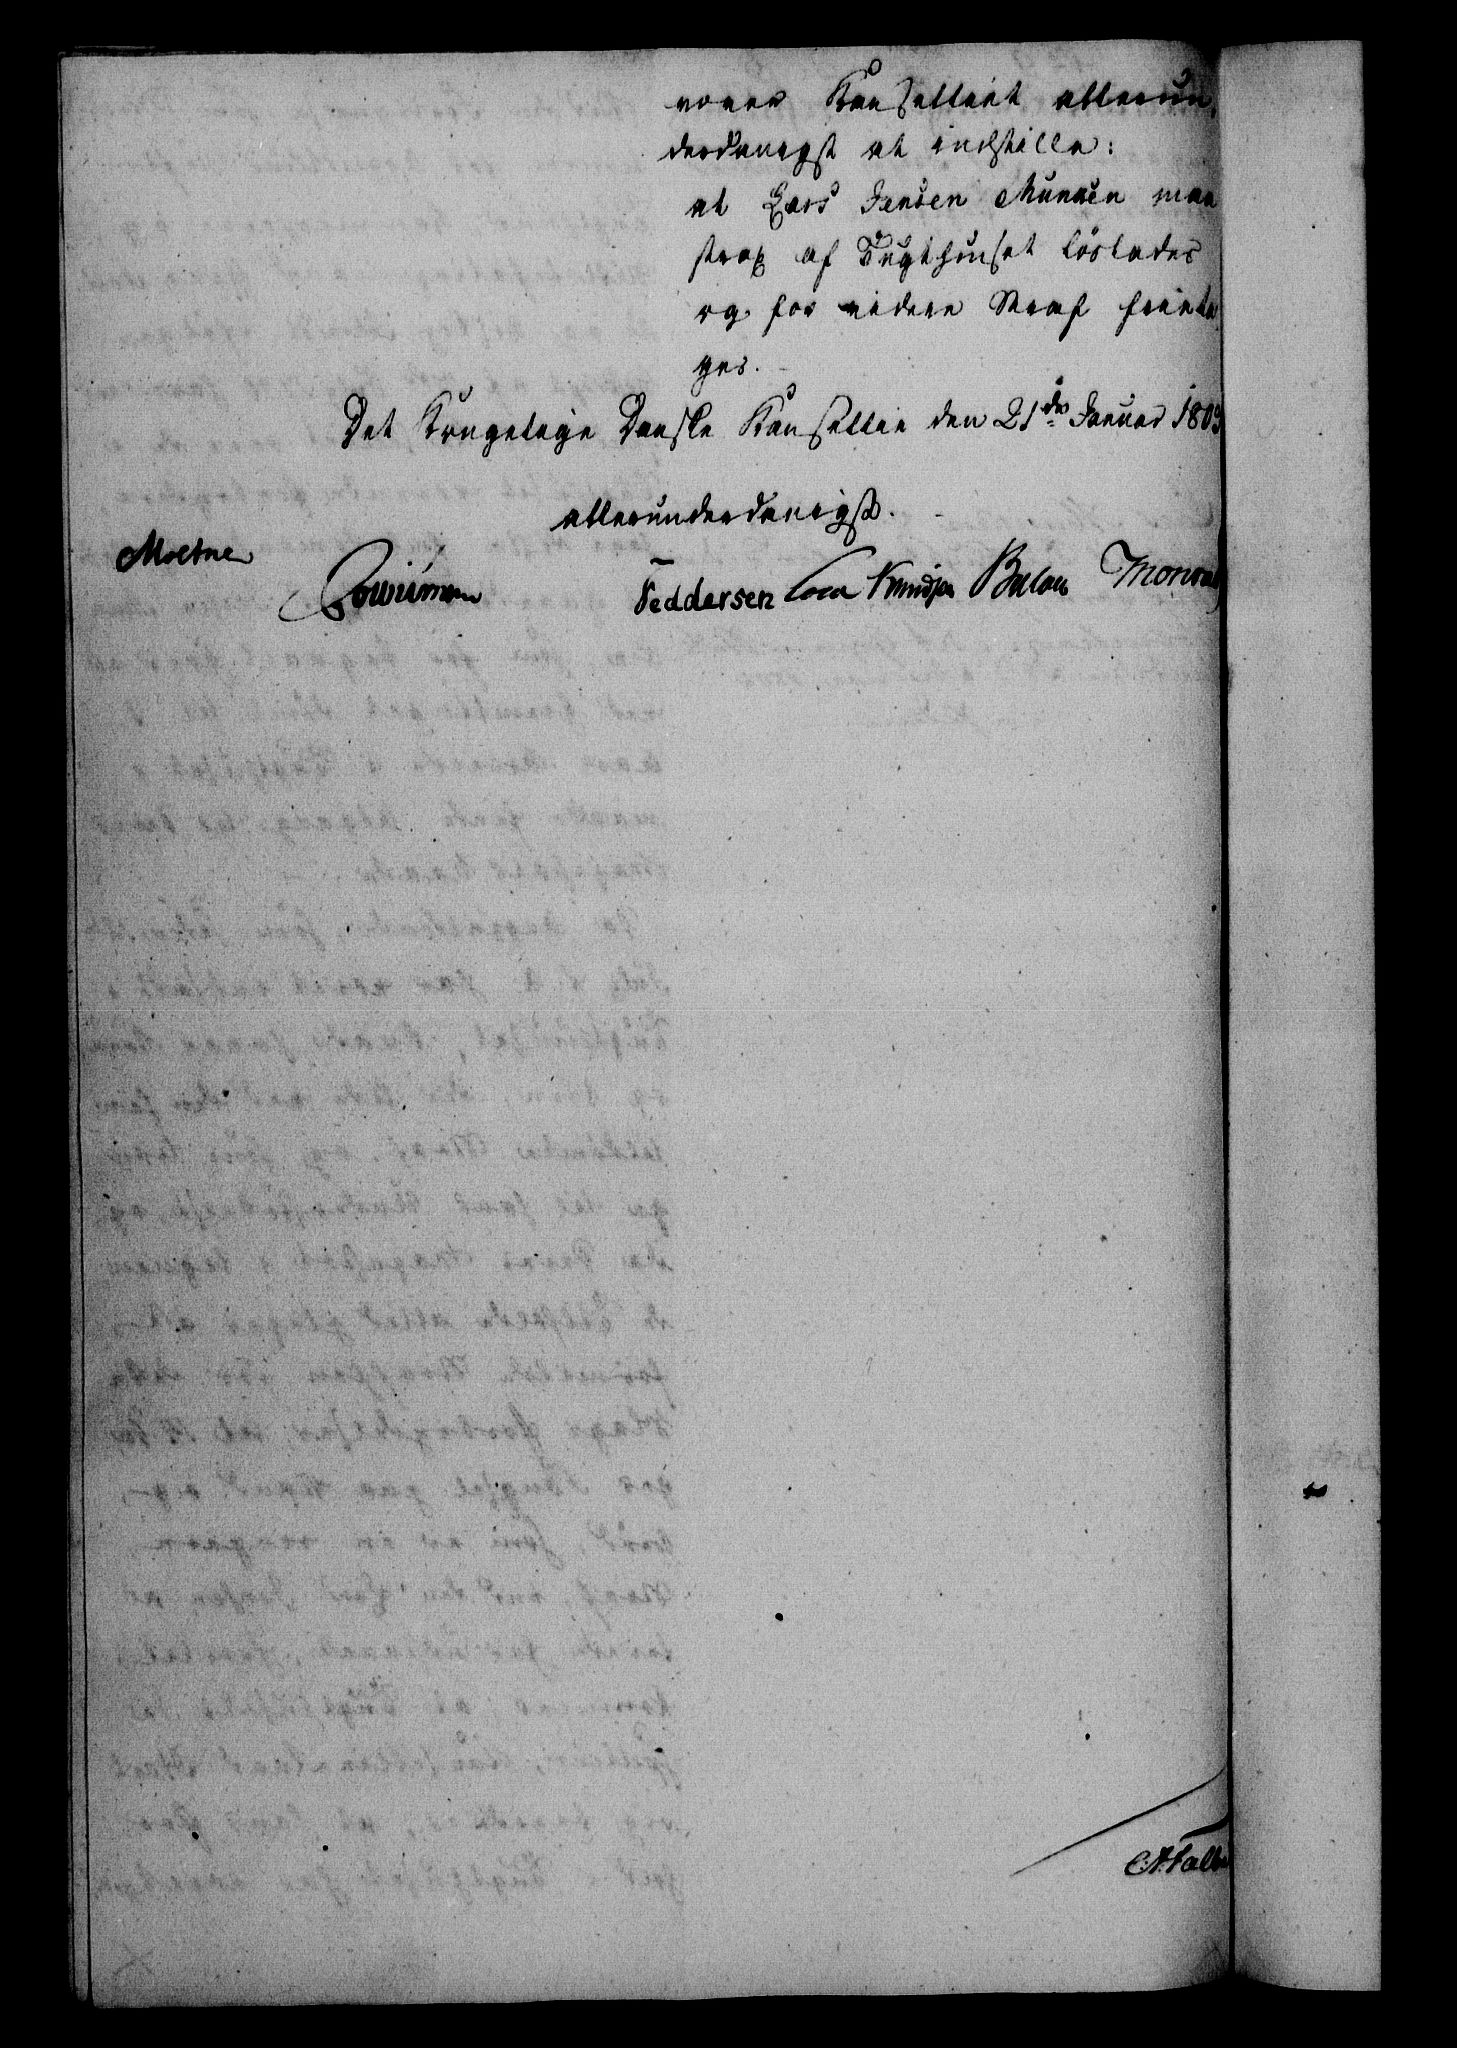 vover Kanselliet allerun-
derdanigst at indstille:
at Lars Jensen Munken maa
strax af Tugthuuset løslades
og for videre Straf fritа-
ges.
Det Kongelige Danske Kansellie den 21de Januar 1803
allerunderdanigst.
Moltke
Feddersen Knudsen Bülow Monrad